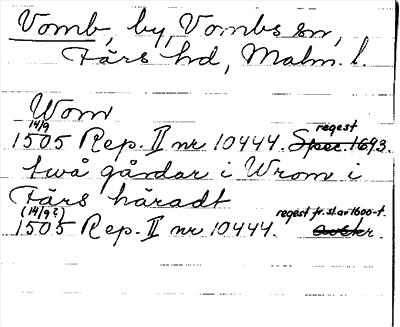 Vomb, by, Vombs sn,
Färs hd, Malm. l.
Wom
14/9 regest
1505 Rep. II nr 10444. Spec. 1693.
två gårdar i Wrom i
Färs häradt
(14/9?) regest fr. sl. av 1600-t.
1505 Rep. II nr 10444.